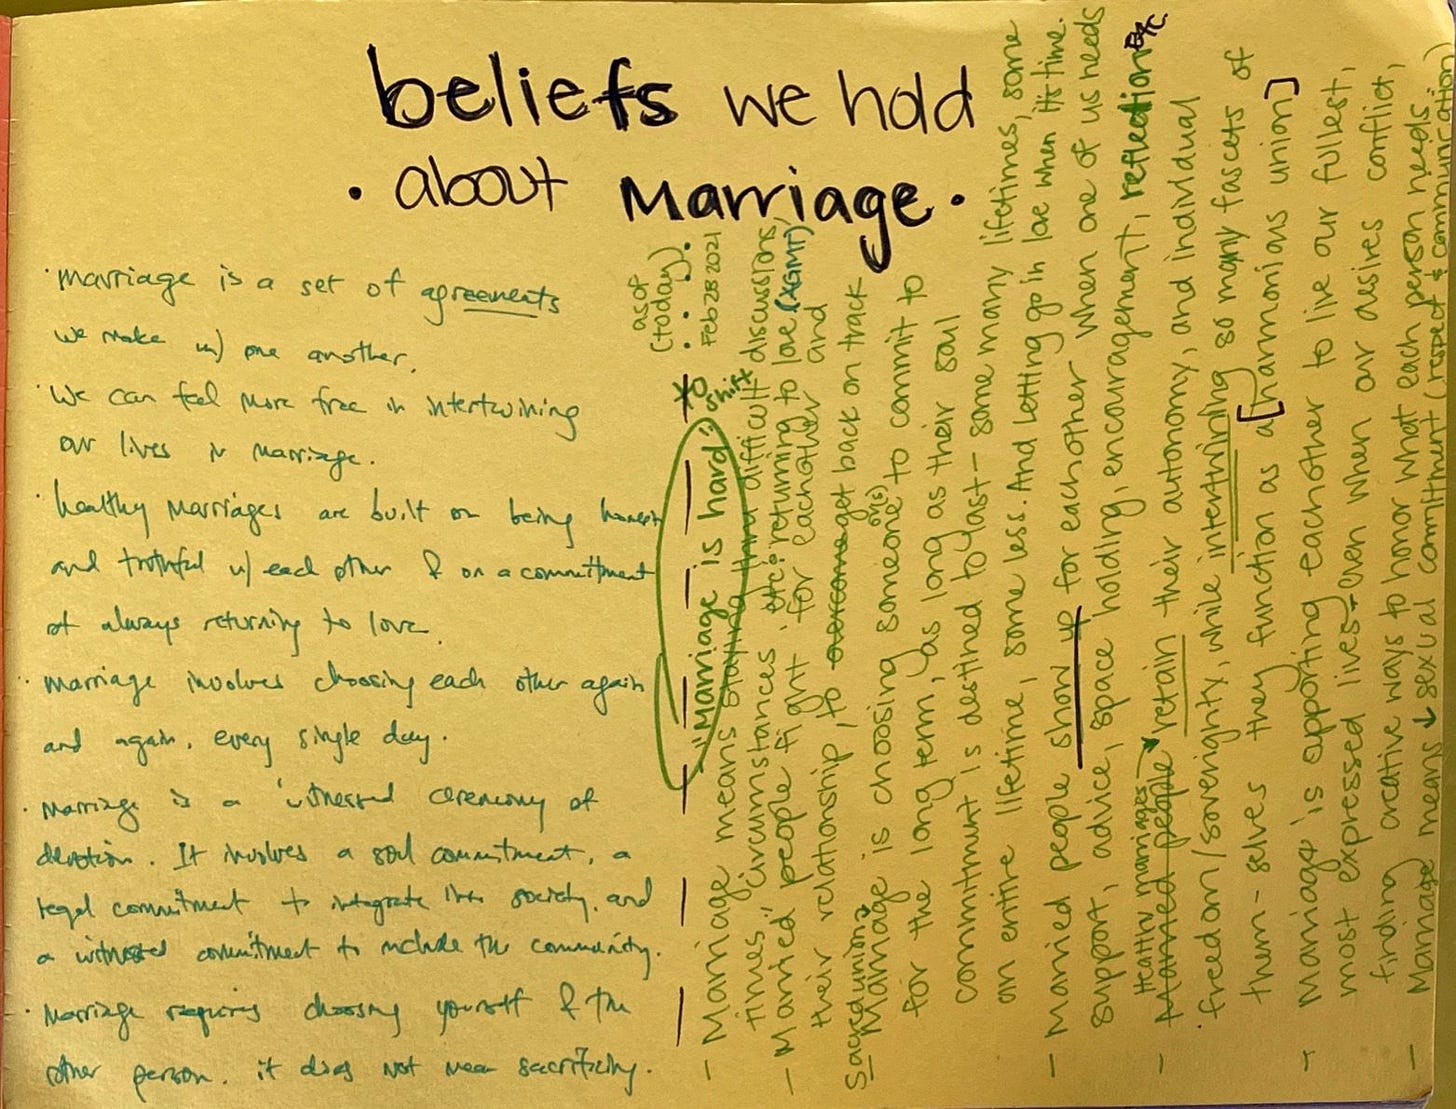 beliefs we hold
• about Marriage •
• Marriage is a set of agreements
we make w/ one another.
• We can feel more free in intertwining
our lives in marriage.
• healthy marriages are built on being honest
and truthful w/ each other & on a commitment
of always returning to love.
• Marriage involves choosing each other again
and again, every single day.
• Marriage is a witnessed ceremony of
devotion. It involves a soul commitment, a
legal commitment to integrate into society, and
a witnessed commitment to include the community.
• Marriage requires choosing yourself & the
other person. it does not mean sacrificing.
as of
(today)
Feb 28 2021
* to shift
"Marriage is hard"
- Marriage means staying thru difficult discussions,
times, circumstances, etc. & returning to love (XGMT)
- Married people fight for eachother and
their relationship, to overcome get back on track
Sacred union
- Marriage is choosing someone(s) to commit to
for the long term, as long as their soul
commitment is destined to last - some many lifetimes, some
an entire lifetime, some less. And letting go in love when it's time.
- Married people show up for eachother when one of us needs
support, advice, space holding, encouragement, reflection etc.
Healthy marriages
- Married people retain their autonomy, and individual
freedom/soverighty, while intertwining so many fascets of
them-selves they function as a [harmonious union]
- Marriage is supporting eachother to live our fullest,
most expressed lives - even when our desires conflict,
finding creative ways to honor what each person needs.
- Marriage means sexual commitment (respect & communication)